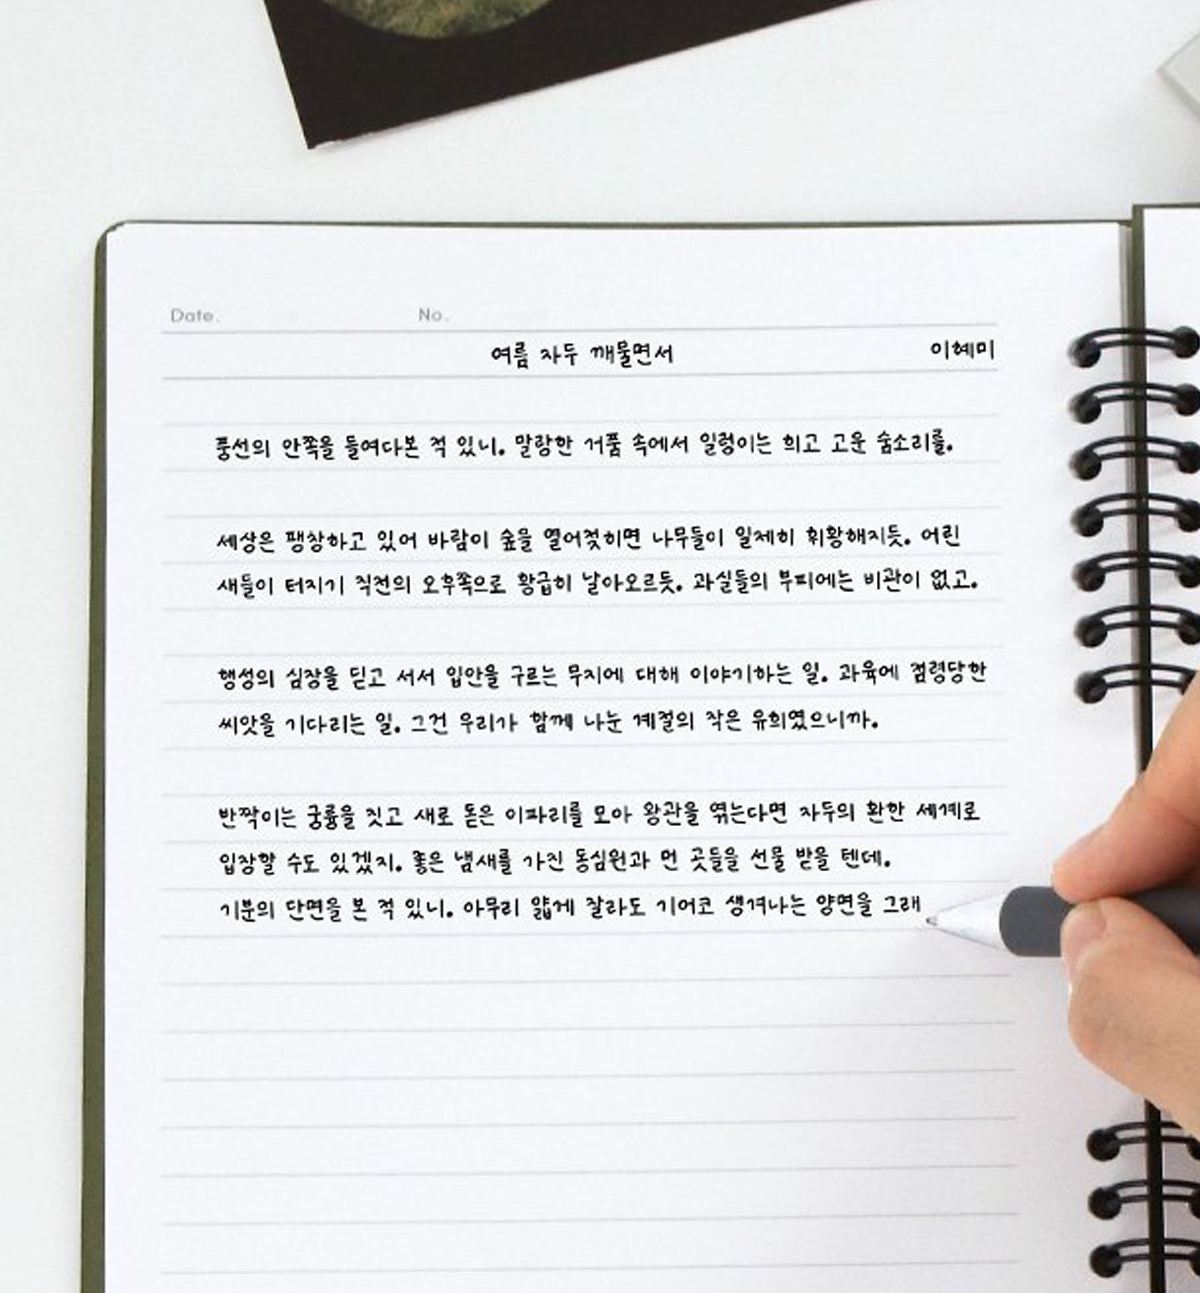 Date. No.
여름 자두 깨물면서 이혜미
풍선의 안쪽을 들여다본 적 있니. 말랑한 거품 속에서 일렁이는 희고 고운 숨소리를.
세상은 팽창하고 있어 바람이 숲을 열어젖히면 나무들이 일제히 휘황해지듯. 어린
새들이 터지기 직전의 오후쪽으로 황급히 날아오르듯. 과실들의 부피에는 비관이 없고.
행성의 심장을 딛고 서서 입안을 구르는 무지에 대해 이야기하는 일. 과육에 점령당한
씨앗을 기다리는 일. 그건 우리가 함께 나눈 계절의 작은 유희였으니까.
반짝이는 궁륭을 짓고 새로 돋은 이파리를 모아 왕관을 엮는다면 자두의 환한 세계로
입장할 수도 있겠지. 좋은 냄새를 가진 동심원과 먼 곳들을 선물 받을 텐데.
기분의 단면을 본 적 있니. 아무리 얇게 잘라도 기어코 생겨나는 양면을 그래